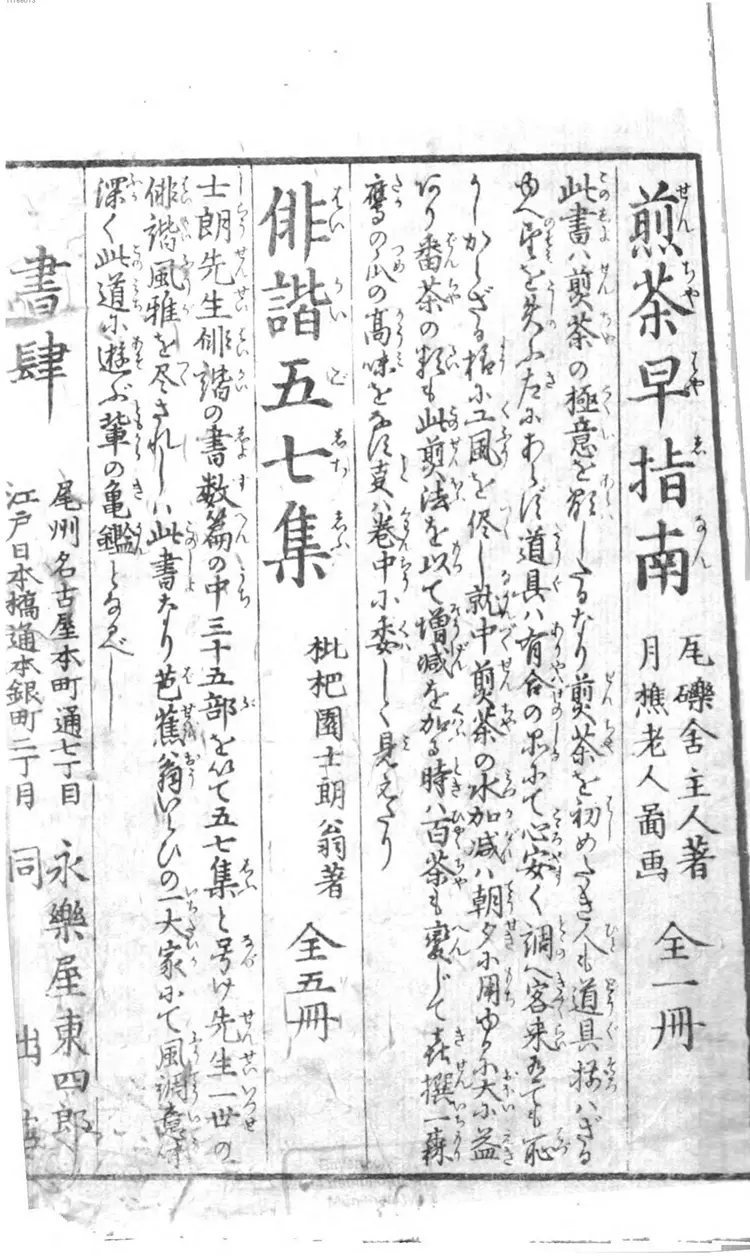 煎茶早指南 尾礫舎主人著 月樵老人畵画 全一冊
此書ハ煎茶の極意を顕したるなり煎茶を初めたき人も道具揃ハざる
ゆへ望を失ふ左にあらず道具ハ有合の品にて心安く調へ客来ありても恥
しからざる様に工風を尽し就中煎茶の水加減ハ朝夕に用ゆるに大に益
あり番茶の類も此煎法を以て増減を加る時ハ百茶も変じて喜撰一森
鷹の爪の高味をなす事ハ巻中に委しく見えたり
俳諧五七集 枇杷園士朗翁著 全五冊
士朗先生俳諧の書数篇の中三十五部を以て五七集と号け先生一世の
俳諧風雅を尽されしハ此書なり芭蕉翁いらひの一大家にて風調意味
深く此道に遊ぶ輩の亀鑑となるべし
書肆
尾州名古屋本町通七丁目 永樂屋東四郎
江戸日本橋通本銀町二丁目 同 出店